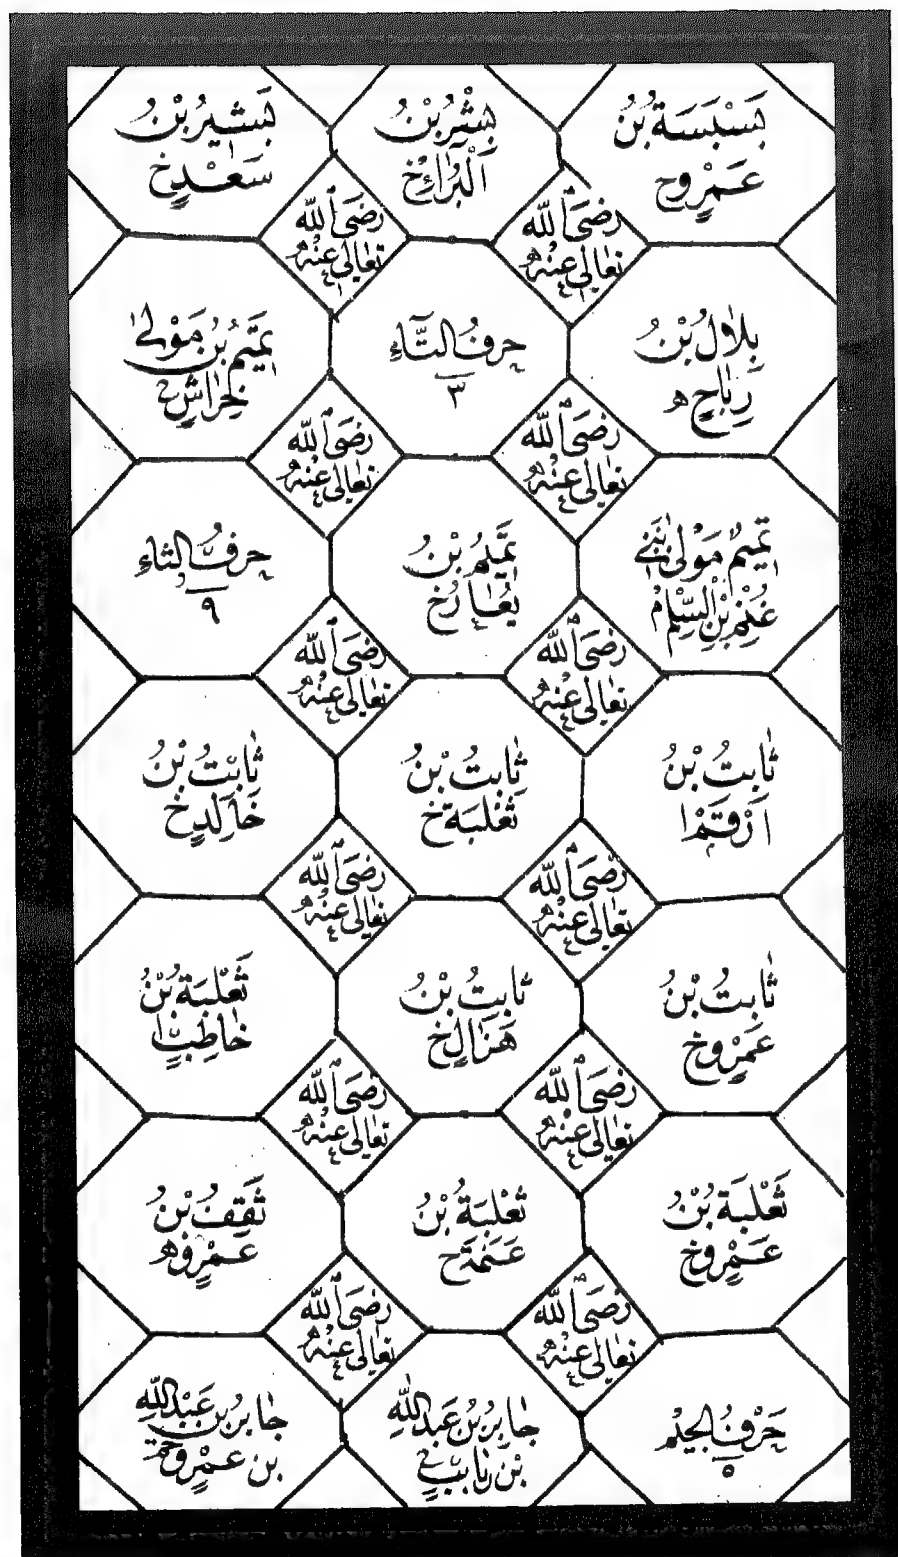 بَسْبَسَةُ بْنُ
عَمْرٍوخ
بِشْرُ بْنُ
الْبَرَاءِخ
بَشِيرُ بْنُ
سَعْدٍخ
رَضِيَ اللّٰهُ
تَعَالٰى عَنْهُ
رَضِيَ اللّٰهُ
تَعَالٰى عَنْهُ
بِلَالُ بْنُ
رَبَاحٍ ه
حرفُ التَّاءِ
٣
تَمِيمُ بْنُ مَوْلٰى
خِرَاشٍ خ
رَضِيَ اللّٰهُ
تَعَالٰى عَنْهُ
رَضِيَ اللّٰهُ
تَعَالٰى عَنْهُ
تَمِيمُ مَوْلٰى بَنِي
غُنْمِ بْنِ السِّلْمِ
تَمِيمُ بْنُ
يُعَارٍخ
حرفُ الثاءِ
٩
رَضِيَ اللّٰهُ
تَعَالٰى عَنْهُ
رَضِيَ اللّٰهُ
تَعَالٰى عَنْهُ
ثَابِتُ بْنُ
اَرْقَمْ ا
ثَابِتُ بْنُ
ثَعْلَبَةَ خ
ثَابِتُ بْنُ
خَالِدٍخ
رَضِيَ اللّٰهُ
تَعَالٰى عَنْهُ
رَضِيَ اللّٰهُ
تَعَالٰى عَنْهُ
ثَابِتُ بْنُ
عَمْرٍوخ
ثَابِتُ بْنُ
هَزَالٍخ
ثَعْلَبَةُ بْنُ
حَاطِبٍ ا
رَضِيَ اللّٰهُ
تَعَالٰى عَنْهُ
رَضِيَ اللّٰهُ
تَعَالٰى عَنْهُ
ثَعْلَبَةُ بْنُ
عَمْرٍوخ
ثَعْلَبَةُ بْنُ
عَنَمَةَ خ
ثَقِفُ بْنُ
عَمْرٍو ه
رَضِيَ اللّٰهُ
تَعَالٰى عَنْهُ
رَضِيَ اللّٰهُ
تَعَالٰى عَنْهُ
حَرْفُ الجِيْمِ
٥
جَابِرُ بْنُ عَبْدِ اللّٰهِ
بْنِ رِيَابٍ خ
جَابِرُ بْنُ عَبْدِ اللّٰهِ
بْنِ عَمْرٍوخ